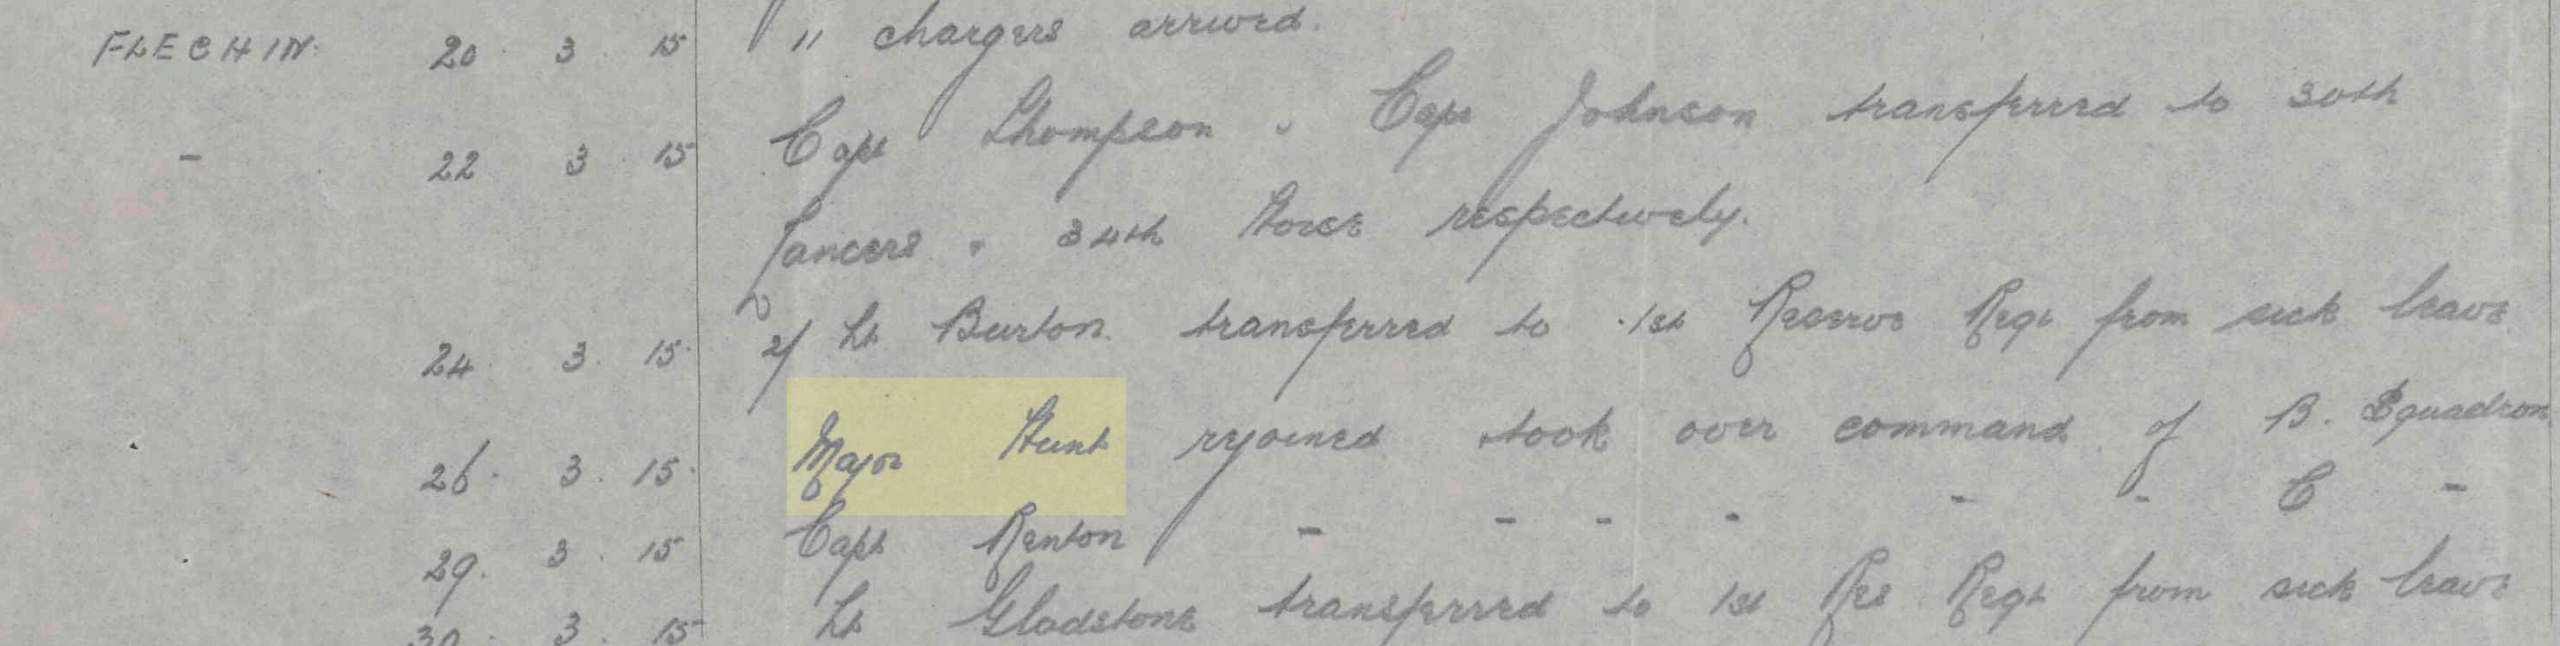 FLECHIN. 20 . 3 . 15 11 chargers arrived.
- 22 3 . 15 Capt Thompson & Capt Johnson transferred to 30th
Lancers & 34th Horse respectively.
24 . 3 . 15 . 2/ Lt Burton. transferred to 1st Reserve Regt from sick leave
26 . 3 . 15 . Major Hunt rejoined & took over command of B. Squadron
29 . 3 . 15 Capt Renton - - - - - - C -
30 . 3 . 15 Lt Gladstone transferred to 1st Res Regt from sick leave